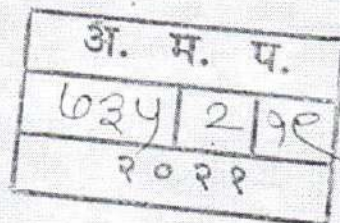 अ. म. प.
७३५ | २ | १९
२०२१